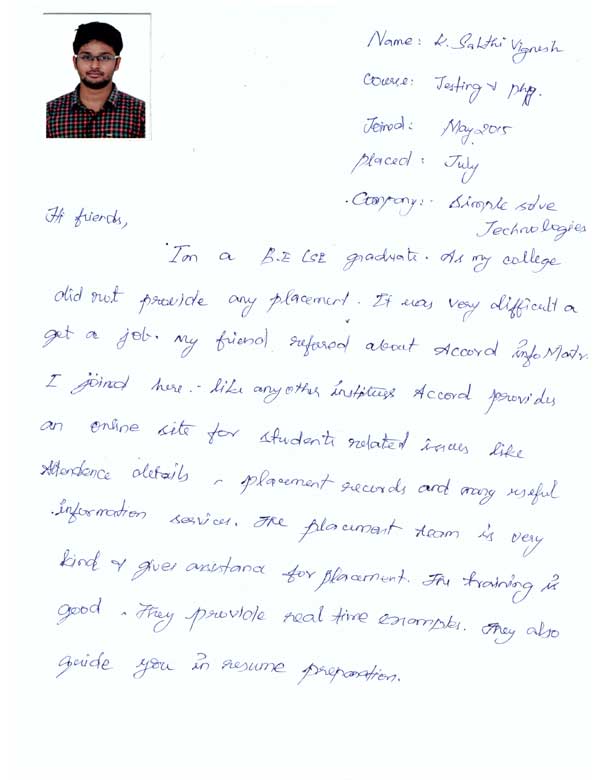 Name: K. Sakthi Vignesh
Course: Testing & php.
Joined: May 2015
placed: July
Company:- Simple solve
Technologies
Hi friends,
I'm a B.E CSE graduate. As my college
did not provide any placement. It was very difficult a
get a job. My friend refered about Accord info Matr.
I joined here. like any other institues Accord provides
an online site for students related issues like
Attendence details, placement records and many useful
information services. The placement team is very
kind & gives assistance for placement. The training is
good. They provide real time examples. They also
guide you in resume preparation.